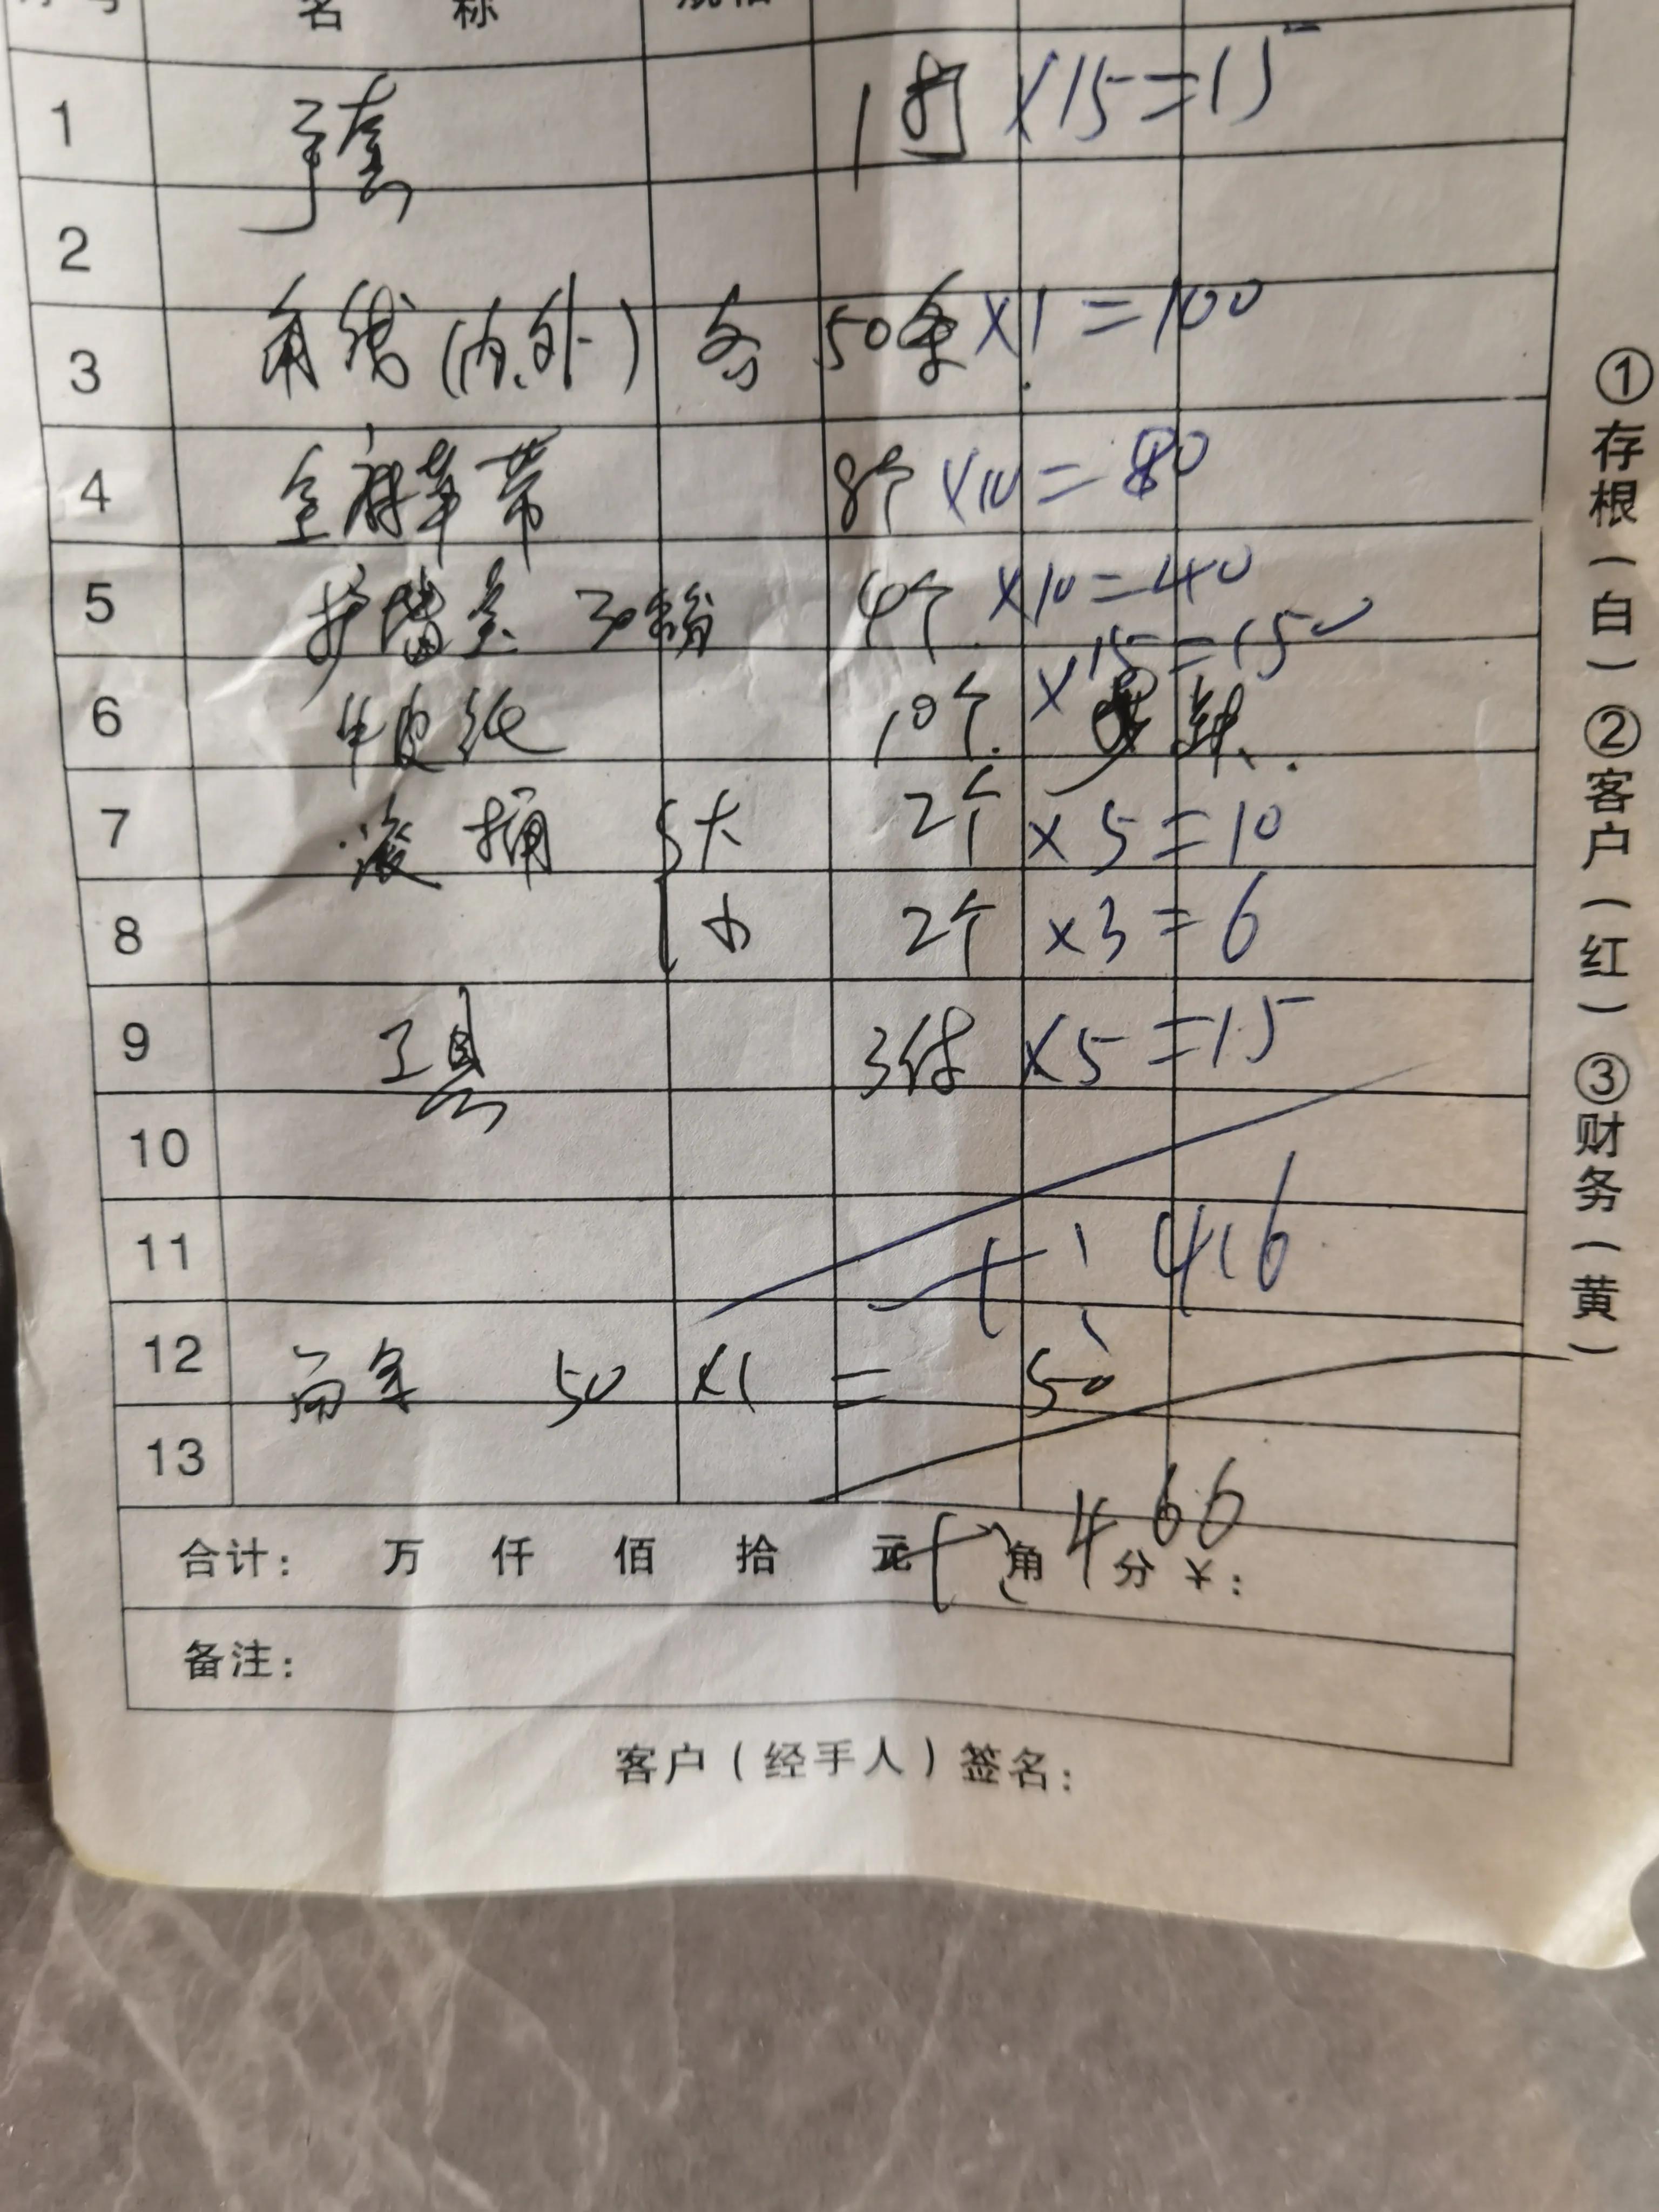 名 称
1 手套 1 打 ×15=15
2
3 角线(内.外) 各 50条 ×1=100
4 8个 ×10=80
5 4个 ×10=40
6 牛皮纸 10个 ×15=150
7 滚桶 大 2个 ×5=10
8 小 2个 ×3=6
9 工具 3件 ×5=15
10
11 416
12 50 ×1 = 50
13
合计: 万 仟 佰 拾 元 角 分 ¥:
466
备注:
客户(经手人)签名:
①存根(白)②客户(红)③财务(黄)